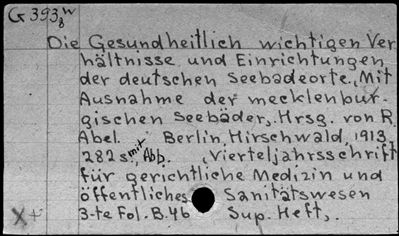 G 393 w
8
Die Gesundheitlich wichtigen Ver
hältnisse und Einrichtungen
der deutschen Seebadeorte, Mit
Ausnahme der mecklenbur-
gischen Seebäder, Hrsg. von R.
Abel. Berlin, Hirschwald, 1913
282 S. mit Abb. (Vierteljahrsschrift
für gerichtliche Medizin und
öffentliches Sanitätswesen
3-te Fol. B. 46 Sup. Heft,.
X+